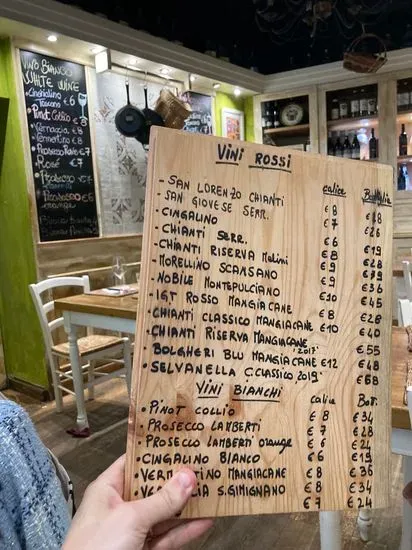 VINO BIANCO
WHITE WINE
Toscano
Pinot Collio
Vernaccia €6
Vermentino €6
Rosé
Prosecco
orange
VINI ROSSI
calice Bottiglia
- SAN LORENZO CHIANTI €8 €28
- SAN GIOVESE SERR. €7 €26
- CINGALINO €6 €19
- CHIANTI SERR. €8 €28
- CHIANTI RISERVA Molini €9
- MORELLINO SCANSANO €9 €36
- NOBILE MONTEPULCIANO €10 €45
- IGT ROSSO MANGIACANE €8 €28
- CHIANTI CLASSICO MANGIACANE €10 €40
- CHIANTI RISERVA MANGIACANE 2017 €55
- BOLGHERI BLU MANGIACANE €12 €48
- SELVANELLA C.CLASSICO 2019 €68
VINI BIANCHI
calice Bott.
- PINOT COLLIO €8 €34
- PROSECCO LAMBERTI €7 €28
- PROSECCO LAMBERTI orange €6 €24
- CINGALINO BIANCO €6 €19
- VERMENTINO MANGIACANE €8 €36
S. GIMIGNANO €7 €24